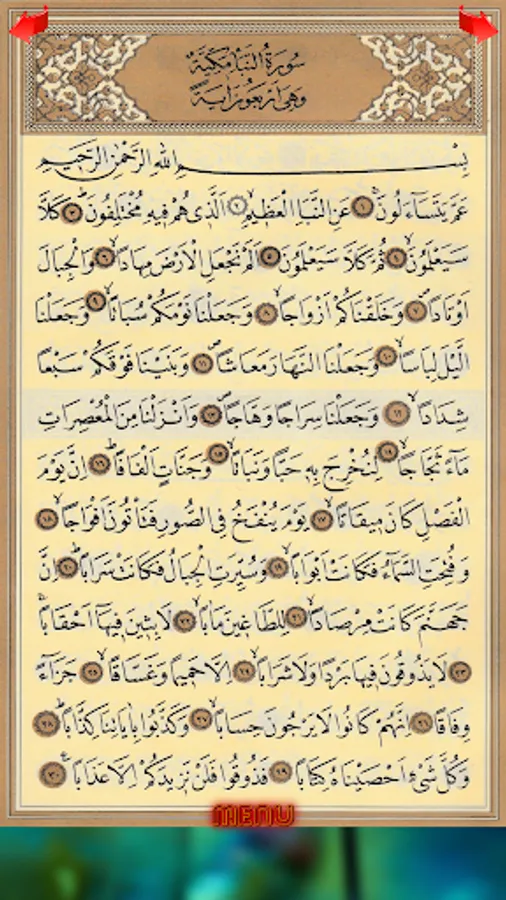 سُورَةُ النَّبَأِ مَكِّيَّةٌ
وَهِيَ اَرْبَعُونَ اٰيَةً
بِسْــــمِ اللهِ الرَّحْمٰنِ الرَّحٖيمِ
عَمَّ يَتَسَٓاءَلُونَۚ ﴿١﴾ عَنِ النَّبَأِ الْعَظٖيمِۙ ﴿٢﴾ اَلَّذٖى هُمْ فٖيهِ مُخْتَلِفُونَۜ ﴿٣﴾ كَلَّا
سَيَعْلَمُونَۙ ﴿٤﴾ ثُمَّ كَلَّا سَيَعْلَمُونَ ﴿٥﴾ اَلَمْ نَجْعَلِ الْاَرْضَ مِهَاداًۙ ﴿٦﴾ وَالْجِبَالَ
اَوْتَاداًۙ ﴿٧﴾ وَخَلَقْنَاكُمْ اَزْوَاجاًۙ ﴿٨﴾ وَجَعَلْنَا نَوْمَكُمْ سُبَاتاًۙ ﴿٩﴾ وَجَعَلْنَا
الَّيْلَ لِبَاساًۙ ﴿١٠﴾ وَجَعَلْنَا النَّهَارَ مَعَاشاًۖ ﴿١١﴾ وَبَنَيْنَا فَوْقَكُمْ سَبْعاً
شِدَاداًۙ ﴿١٢﴾ وَجَعَلْنَا سِرَاجاً وَهَّاجاًۖ ﴿١٣﴾ وَاَنْزَلْنَا مِنَ الْمُعْصِرَاتِ
مَٓاءً ثَجَّاجاًۙ ﴿١٤﴾ لِنُخْرِجَ بِهٖ حَباًّ وَنَبَاتاًۙ ﴿١٥﴾ وَجَنَّاتٍ اَلْفَافاًۜ ﴿١٦﴾ اِنَّ يَوْمَ
الْفَصْلِ كَانَ مٖيقَاتاًۙ ﴿١٧﴾ يَوْمَ يُنْفَخُ فِى الصُّورِ فَتَأْتُونَ اَفْوَاجاًۙ ﴿١٨﴾
وَفُتِحَتِ السَّمَٓاءُ فَكَانَتْ اَبْوَاباًۙ ﴿١٩﴾ وَسُيِّرَتِ الْجِبَالُ فَكَانَتْ سَرَاباًۜ ﴿٢٠﴾ اِنَّ
جَهَنَّمَ كَانَتْ مِرْصَاداًۙ ﴿٢١﴾ لِلطَّاغٖينَ مَاٰباًۙ ﴿٢٢﴾ لَابِثٖينَ فٖيهَٓا اَحْقَاباًۚ
﴿٢٣﴾ لَا يَذُوقُونَ فٖيهَا بَرْداً وَلَا شَرَاباًۙ ﴿٢٤﴾ اِلَّا حَمٖيماً وَغَسَّاقاًۙ ﴿٢٥﴾ جَزَٓاءً
وِفَاقاًۜ ﴿٢٦﴾ اِنَّهُمْ كَانُوا لَا يَرْجُونَ حِسَاباًۙ ﴿٢٧﴾ وَكَذَّبُوا بِاٰيَاتِنَا كِذَّاباًۜ ﴿٢٨﴾
وَكُلَّ شَیْءٍ اَحْصَيْنَاهُ كِتَاباًۙ ﴿٢٩﴾ فَذُوقُوا فَلَنْ نَزٖيدَكُمْ اِلَّا عَذَاباًࣖ ﴿٣٠﴾
MENU